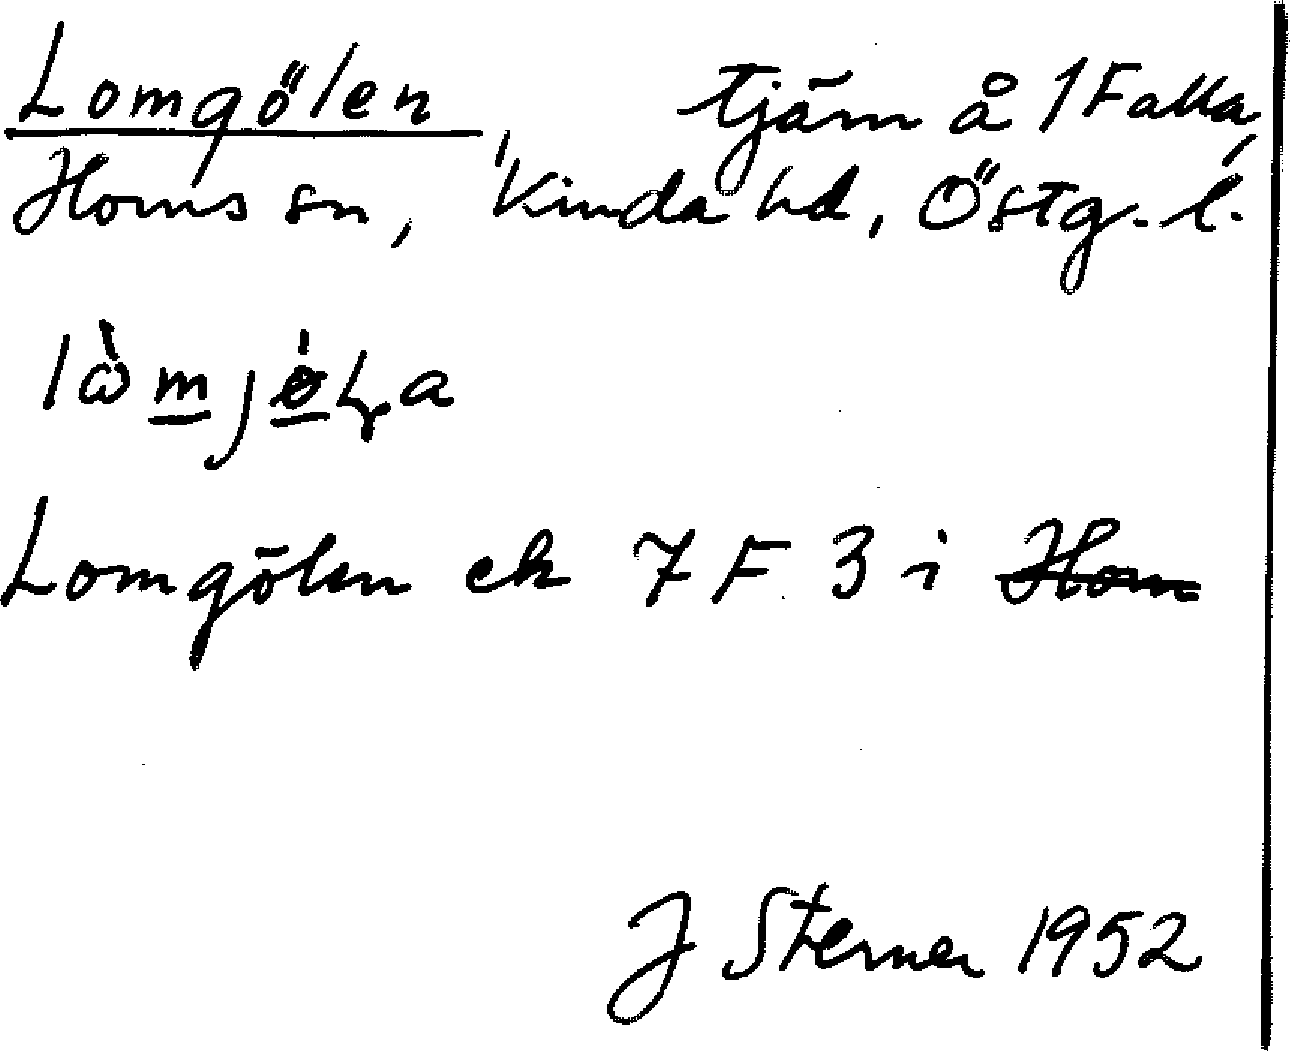 Lomgölen, tjärn å 1 Falla,
Horns sn, Kinda hd, Östg. l.
Lomgölen ek 7 F 3 i Horn
J Sterner 1952